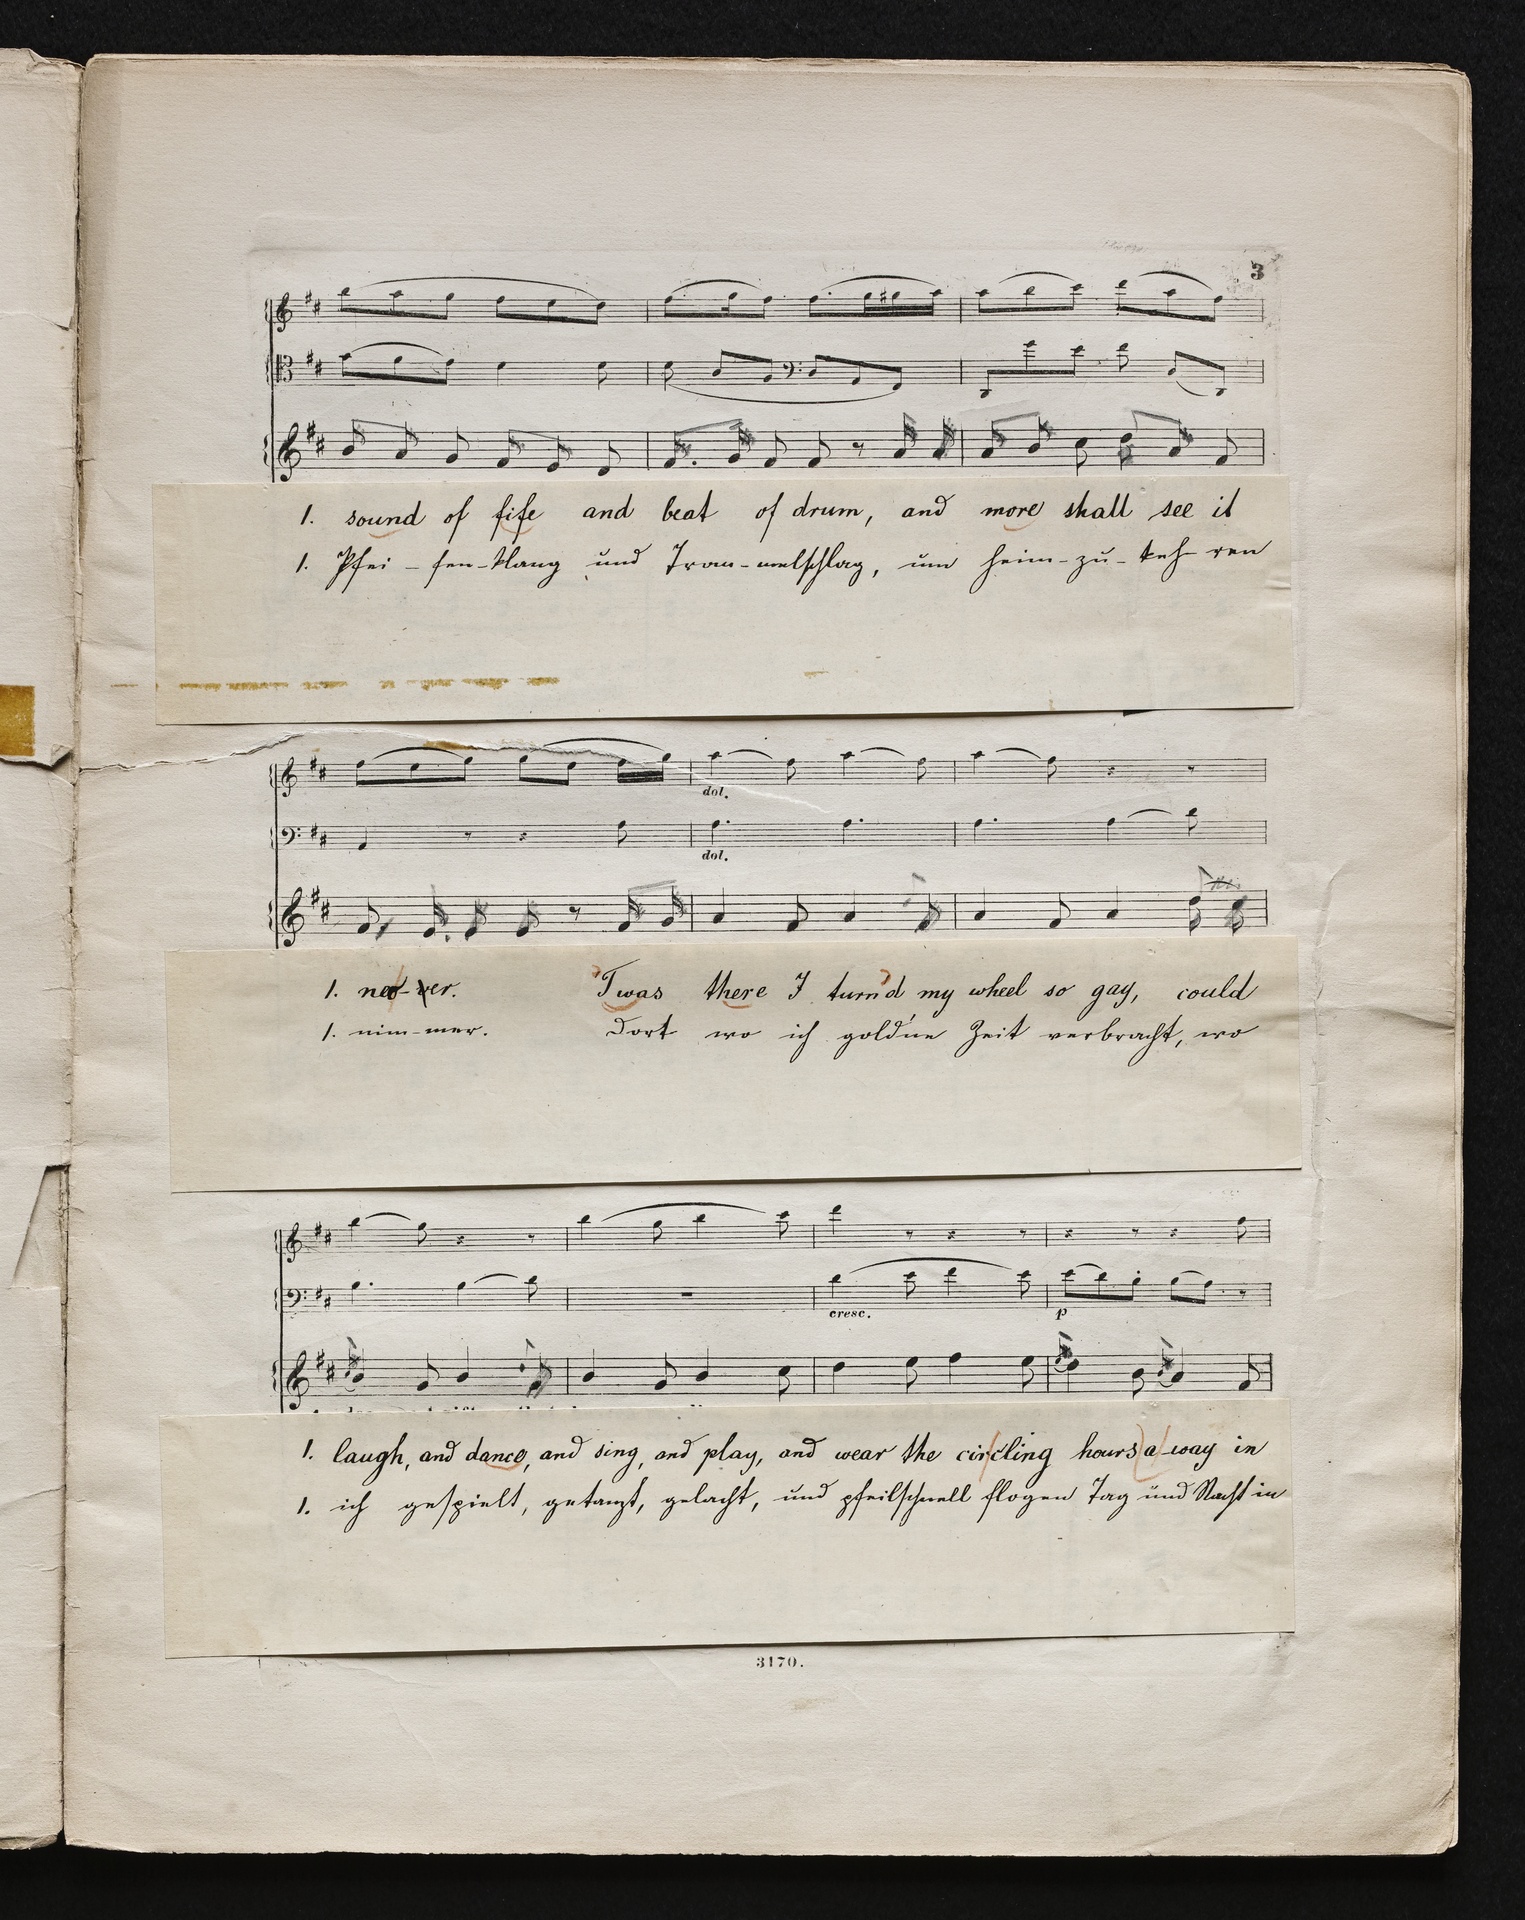 3
1. sound of fife and beat of drum, and more shall see it
1. Pfei-fen-klang und Trom-melschlag, um heim-zu-keh-ren
dol.
dol.
1. nev-ver. 'Twas there I turn'd my wheel so gay, could
1. nim-mer. Dort wo ich gold'ne Zeit verbracht, wo
cresc.
p
1. laugh, and dance, and sing, and play, and wear the circling hours a-way in
1. ich gespielt, getanzt, gelacht, und pfeilschnell flogen Tag und Nacht in
3170.